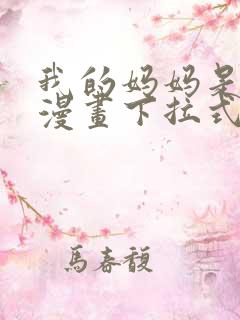 我的妈妈是
漫畫下拉式
馬春馥